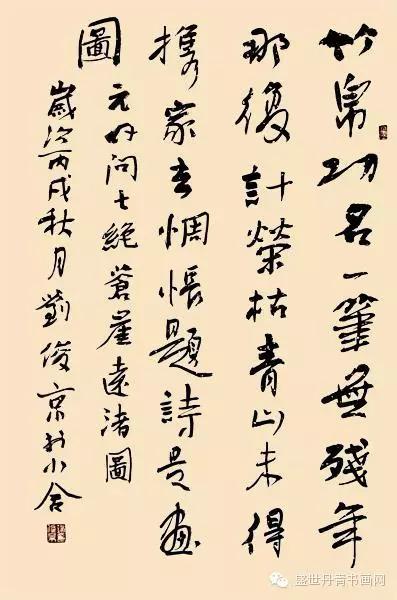 竹帛功名一筆無殘年
那復計榮枯青山未得
携家去惆悵題詩是畫
圖
元好問七絕蒼崖遠渚圖
歲次丙戌秋月劉俊京於小舍
盛世丹青书画网